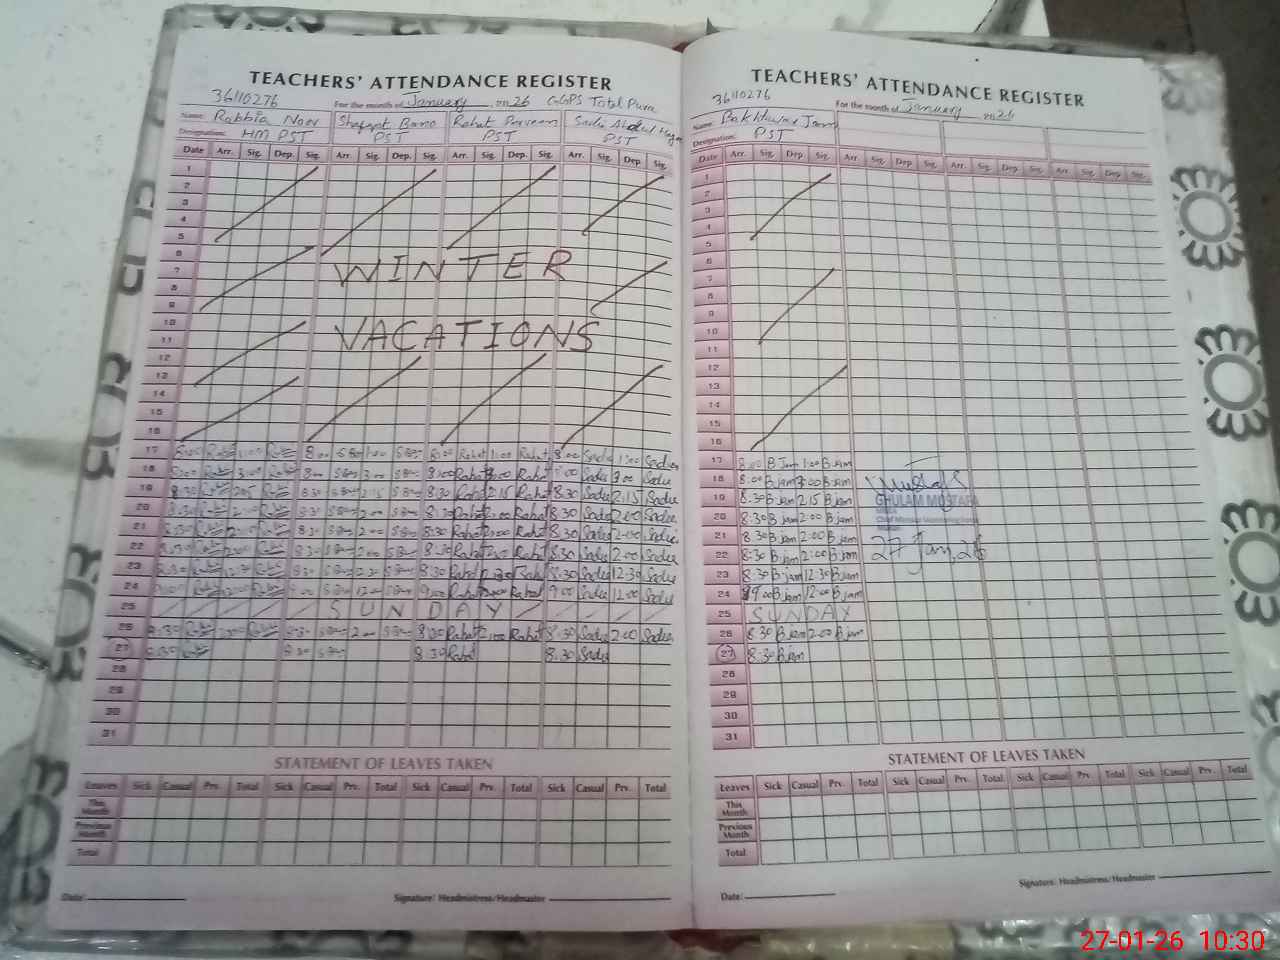 TEACHERS' ATTENDANCE REGISTER
36110276 For the month of January 2026 GGPS Total Pura
Name: Rabbia Noor Shafqat Bano Rahat Parveen Sadia Abdul
Designation: HM PST PST PST PST
Date Arr. Sig. Dep. Sig. Arr. Sig. Dep. Sig. Arr. Sig. Dep. Sig. Arr. Sig. Dep. Sig.
1
2
3
4
5
6
7 WINTER
8
9
10
11 VACATIONS
12
13
14
15
16
17 8:00 1:00 8:00 1:00 8:00 Rahat 1:00 Rahat 8:00 Sadia 1:00 Sadia
18 8:00 3:00 8:00 3:00 8:00 Rahat 3:00 Rahat 8:00 Sadia 3:00 Sadia
19 8:30 2:15 8:30 2:15 8:30 Rahat 2:15 Rahat 8:30 Sadia 2:15 Sadia
20 8:30 2:00 8:30 2:00 8:30 Rahat 2:00 Rahat 8:30 Sadia 2:00 Sadia
21 8:30 2:00 8:30 2:00 8:30 Rahat 2:00 Rahat 8:30 Sadia 2:00 Sadia
22 8:30 2:00 8:30 2:00 8:30 Rahat 2:00 Rahat 8:30 Sadia 2:00 Sadia
23 8:30 12:30 8:30 12:30 8:30 Rahat 12:30 Rahat 8:30 Sadia 12:30 Sadia
24 9:00 12:00 9:00 12:00 9:00 Rahat 12:00 Rahat 9:00 Sadia 12:00 Sadia
25 SUNDAY
26 8:30 2:00 8:30 2:00 8:30 Rahat 2:00 Rahat 8:30 Sadia 2:00 Sadia
27 8:30 8:30 8:30 Rahat 8:30 Sadia
28
29
30
31
STATEMENT OF LEAVES TAKEN
Leaves Sick Casual Prv. Total Sick Casual Prv. Total Sick Casual Prv. Total Sick Casual Prv. Total
This Month
Previous Month
Total
Date: Signature: Headmistress/Headmaster
TEACHERS' ATTENDANCE REGISTER
36110276 For the month of January 2026
Name: Bakhtwar Jam
Designation: PST
Date Arr. Sig. Dep. Sig. Arr. Sig. Dep. Sig. Arr. Sig. Dep. Sig. Arr. Sig. Dep. Sig.
1
2
3
4
5
6
7
8
9
10
11
12
13
14
15
16
17 8:00 B Jam 1:00 B.jam
18 8:00 B jam 3:00 B.jam
19 8:30 B jam 2:15 B jam GHULAM MUSTAFA
20 8:30 B jam 2:00 B jam
21 8:30 B jam 2:00 B jam
22 8:30 B jam 2:00 B jam 27 Jan, 26
23 8:30 B jam 12:30 B jam
24 9:00 B jam 12:00 B jam
25 SUNDAY
26 8:30 B jam 2:00 B jam
27 8:30 B jam
28
29
30
31
STATEMENT OF LEAVES TAKEN
Leaves Sick Casual Prv. Total Sick Casual Prv. Total Sick Casual Prv. Total Sick Casual Prv. Total
This Month
Previous Month
Total
Date: Signature: Headmistress/Headmaster
27-01-26 10:30